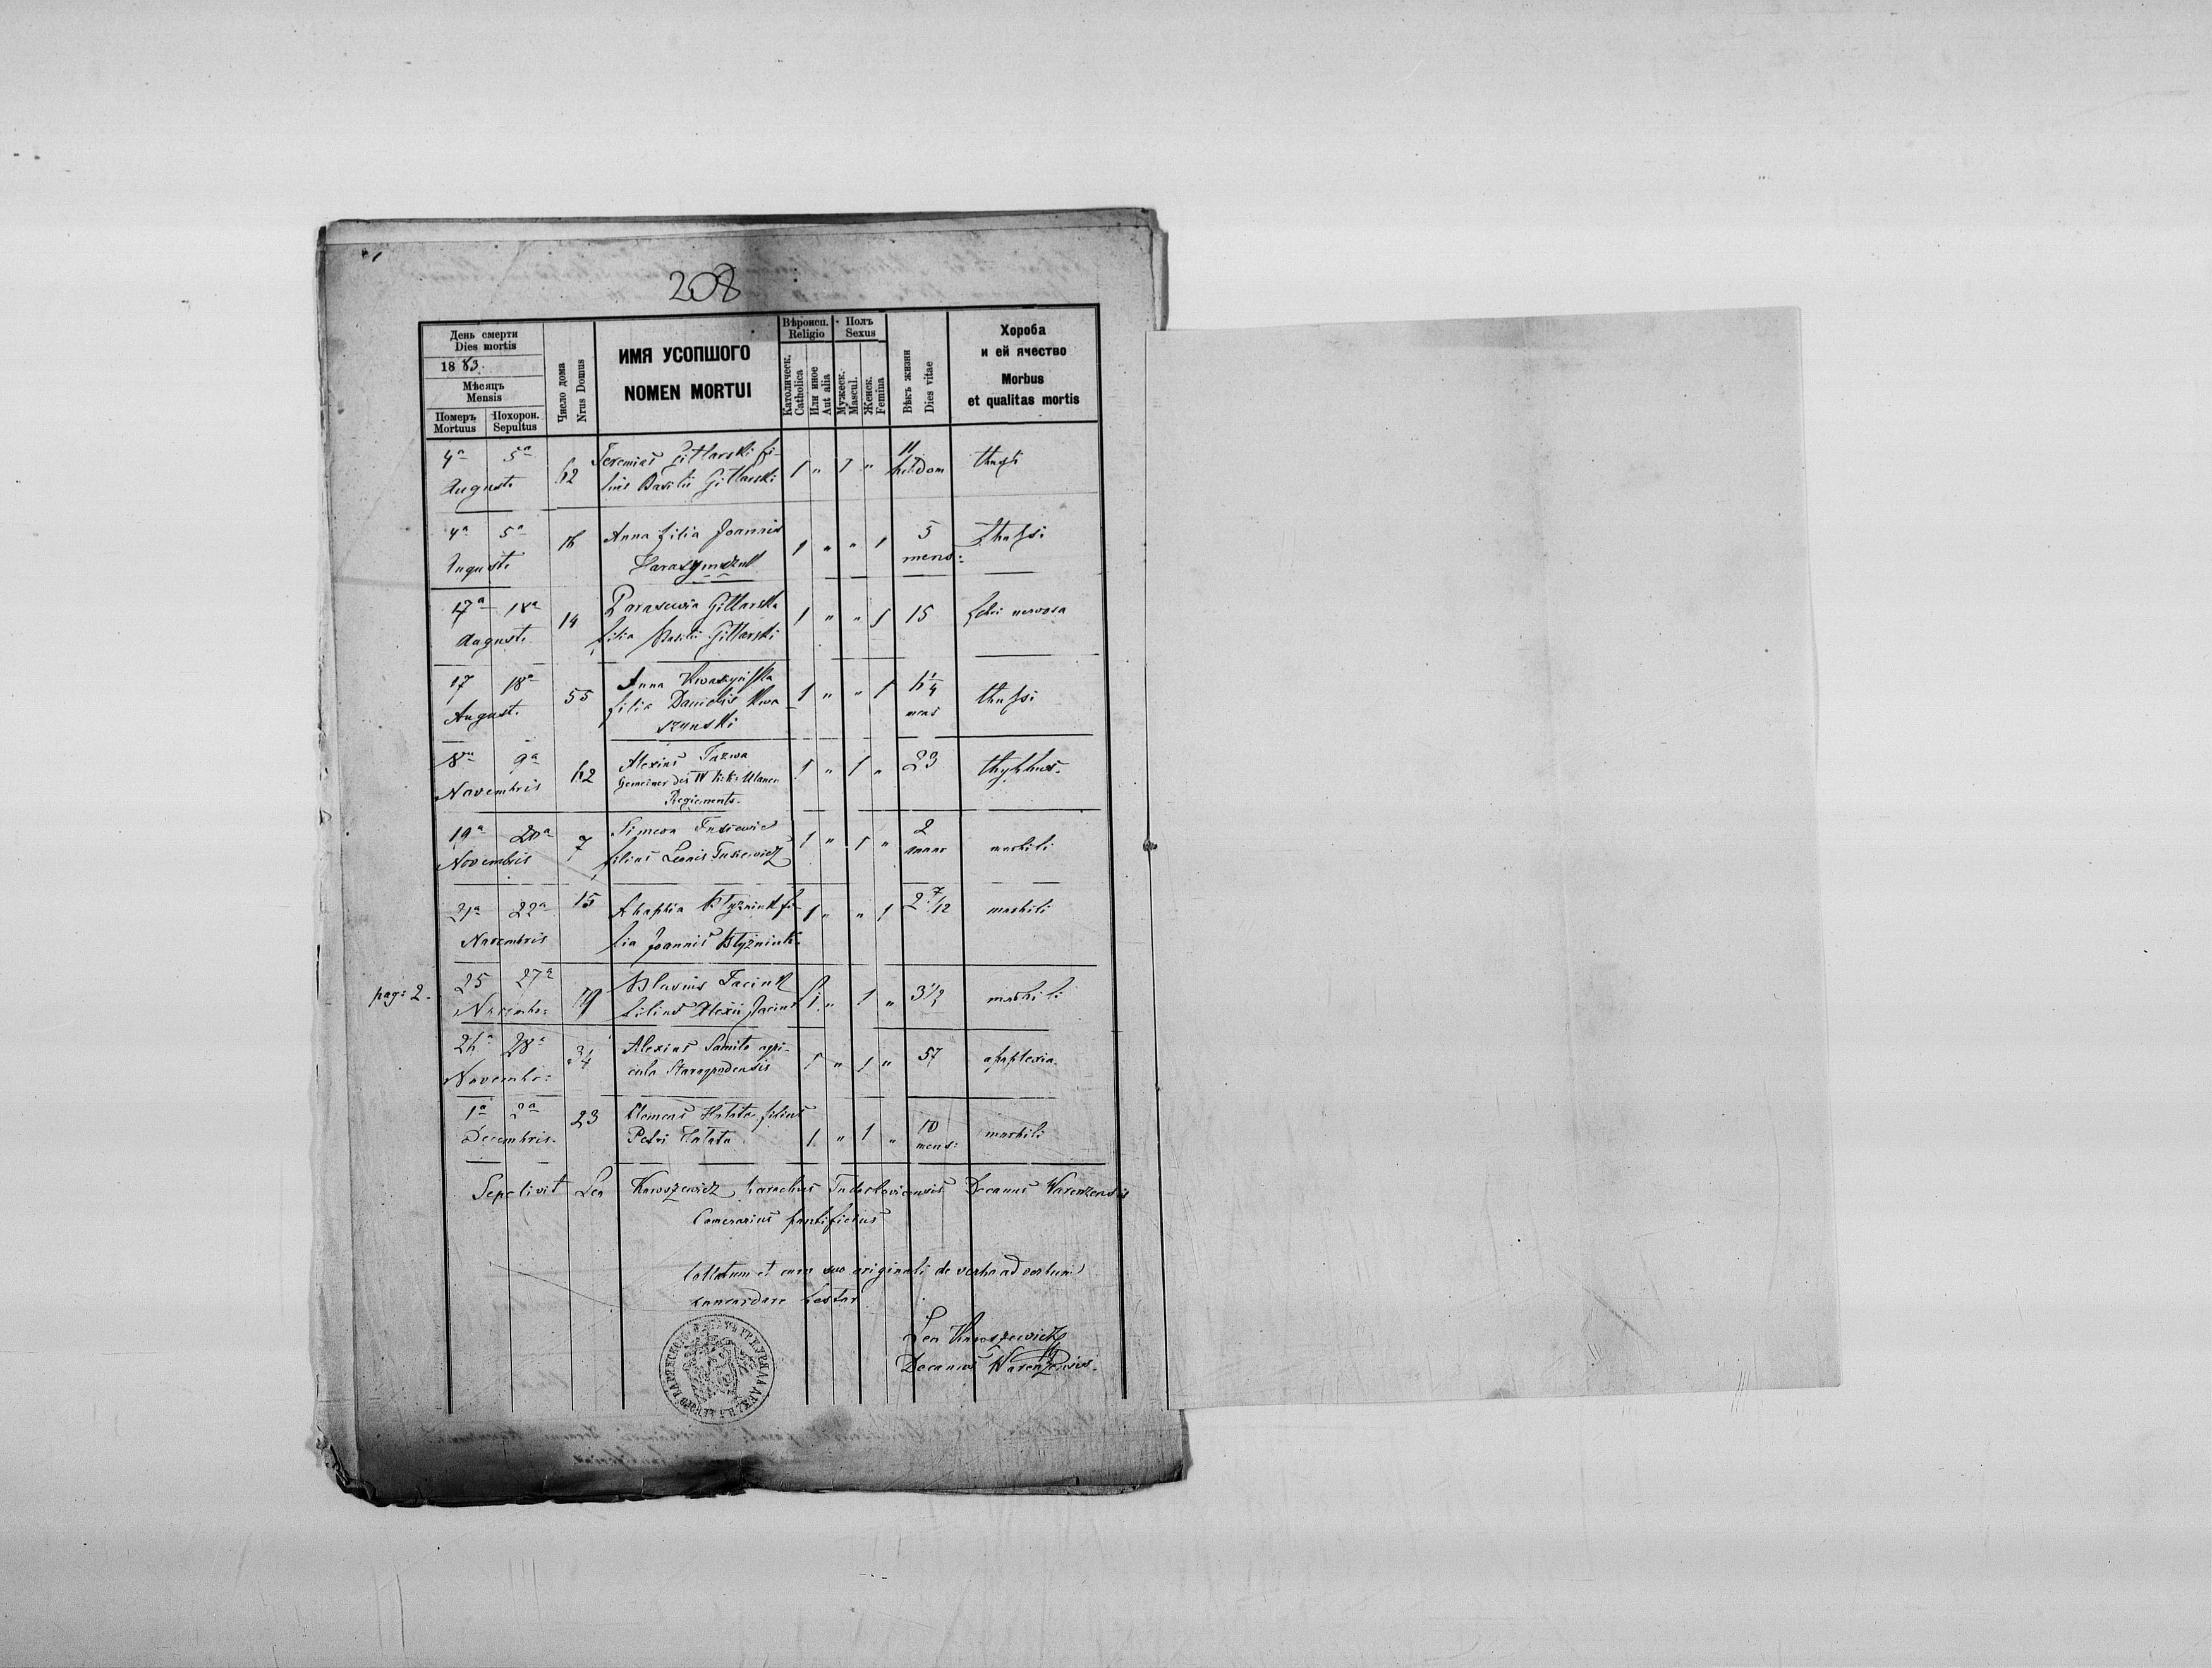 208
День смерти
Dies mortis
1883.
Мѣсяцъ
Mensis
Померъ Похорон.
Mortuus Sepultus
Число дома
Nrus Domus
ИМЯ УСОПШОГО
NOMEN MORTUI
Вѣроисп.
Religio
Католическ.
Catholica
Или иное
Aut alia
Полъ
Sexus
Мужеск.
Mascul.
Женск.
Femina
Вѣкъ жизни
Dies vitae
Хороба
и ей ячество
Morbus
et qualitas mortis
4a 5a 62 Jeremias Gitlarski fi- 1 " 1 " 11
Augusti lius Basilii Gitlarski hebdom
4a 5a 16 Anna filia Joannis 1 " " 1 5
Augusti mens:
17a 18a 14 Parascevia Gitlarska 1 " " 1 15 febri nervosa
Augusti filia Basilii Gitlarski
17 18a 55 Anna 1 " " 1 6 1/4
August. filia Danielis Kwa mens
szynski
8va 9a 62 Alexius 1 " 1 " 23 thyphus.
Novembris Gemeiner des IV k: k: Ulanen
Regiments.
19a 20a 7 Simeon 1 " 1 " 2 morbili
Novembris filius Leonis annor
21a 22a 15 Ahaphia fi- 1 " " 1 2 7/12 morbili
Novembris lia Joannis
pag: 2.
25 27a 19 Blasius Jaciuk 1 " 1 " 3 1/2 morbili
Novembr: filius Alexii Jaciuk
26a 28a 34 Alexius agri- 1 " 1 " 57 apoplexia.
Novembr: cola Starogrodensis
1a 2a 23 Clemens Halata filius 10
Decembris. Petri Halata 1 " 1 " mens: morbili
Sepelivit Leo parochus Decanus Warenzensis
Camerarius pontificius
Collatum et cum suo originali de verbo ad verbum
concordare testor
Leo
Decanus Warenzensis.